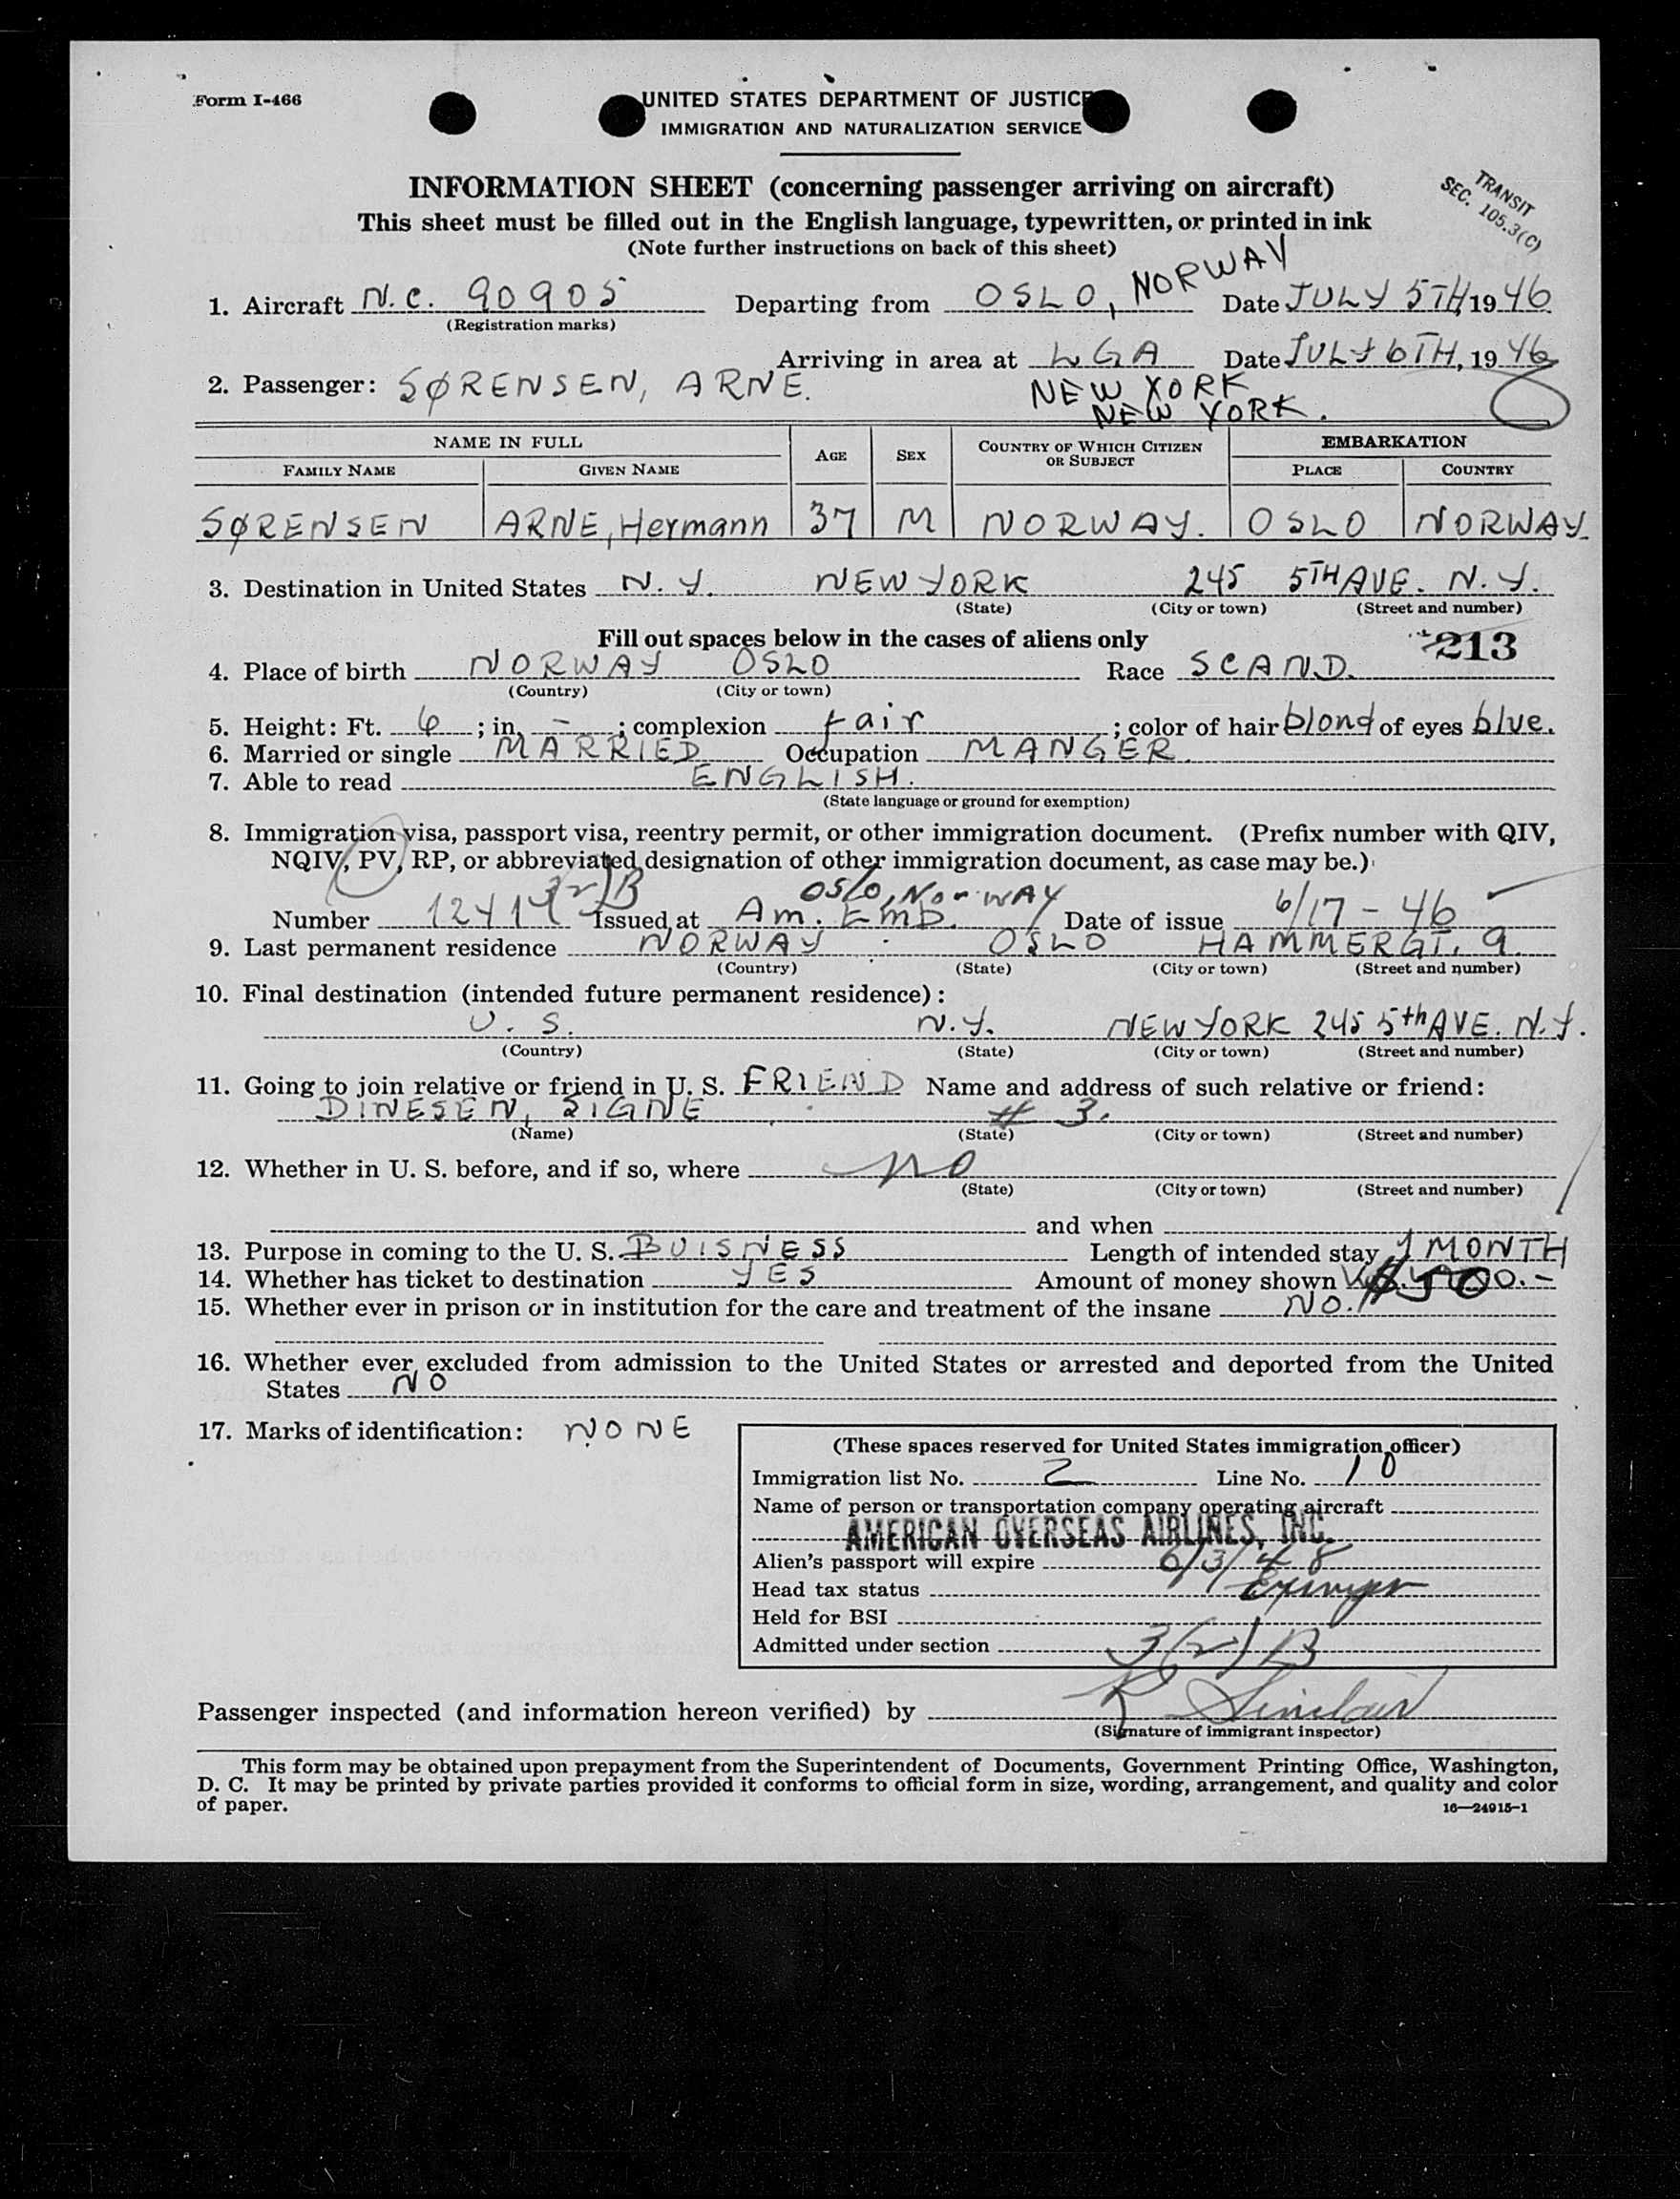 Form I-466
UNITED STATES DEPARTMENT OF JUSTICE
IMMIGRATION AND NATURALIZATION SERVICE
INFORMATION SHEET (concerning passenger arriving on aircraft)
TRANSIT
SEC. 105.3(C)
This sheet must be filled out in the English language, typewritten, or printed in ink
(Note further instructions on back of this sheet)
1. Aircraft N.C. 90905 Departing from OSLO, NORWAY Date JULY 5TH, 1946
(Registration marks)
Arriving in area at LGA Date JULY 6TH, 1946
2. Passenger: SØRENSEN, ARNE. NEW YORK
NEW YORK.
NAME IN FULL AGE SEX COUNTRY OF WHICH CITIZEN OR SUBJECT EMBARKATION
FAMILY NAME GIVEN NAME PLACE COUNTRY
SØRENSEN ARNE, Hermann 37 M NORWAY. OSLO NORWAY.
3. Destination in United States N.Y. NEW YORK 245 5TH AVE. N.Y.
(State) (City or town) (Street and number)
Fill out spaces below in the cases of aliens only 213
4. Place of birth NORWAY OSLO Race SCAND.
(Country) (City or town)
5. Height: Ft. 6 ; in. – ; complexion fair ; color of hair blond of eyes blue.
6. Married or single MARRIED Occupation MANGER.
7. Able to read ENGLISH.
(State language or ground for exemption)
8. Immigration visa, passport visa, reentry permit, or other immigration document. (Prefix number with QIV,
NQIV, PV, RP, or abbreviated designation of other immigration document, as case may be.)
3(2)B OSLO, NORWAY
Number Issued at Am. Emb. Date of issue 6/17-46
9. Last permanent residence NORWAY OSLO HAMMERGT. 9.
(Country) (State) (City or town) (Street and number)
10. Final destination (intended future permanent residence):
U.S. N.Y. NEW YORK 245 5th AVE. N.Y.
(Country) (State) (City or town) (Street and number)
11. Going to join relative or friend in U. S. FRIEND Name and address of such relative or friend:
DINESEN, SIGNE # 3.
(Name) (State) (City or town) (Street and number)
12. Whether in U. S. before, and if so, where no
(State) (City or town) (Street and number)
and when
13. Purpose in coming to the U. S. BUISNESS Length of intended stay 1 MONTH
14. Whether has ticket to destination YES Amount of money shown
15. Whether ever in prison or in institution for the care and treatment of the insane NO.
16. Whether ever excluded from admission to the United States or arrested and deported from the United
States NO
17. Marks of identification: NONE
(These spaces reserved for United States immigration officer)
Immigration list No. 2 Line No. 10
Name of person or transportation company operating aircraft
AMERICAN OVERSEAS AIRLINES, INC.
Alien's passport will expire 6/3/48
Head tax status
Held for BSI
Admitted under section 3(2)B
Passenger inspected (and information hereon verified) by R Sinclair
(Signature of immigrant inspector)
This form may be obtained upon prepayment from the Superintendent of Documents, Government Printing Office, Washington,
D. C. It may be printed by private parties provided it conforms to official form in size, wording, arrangement, and quality and color
of paper.
16—24915-1